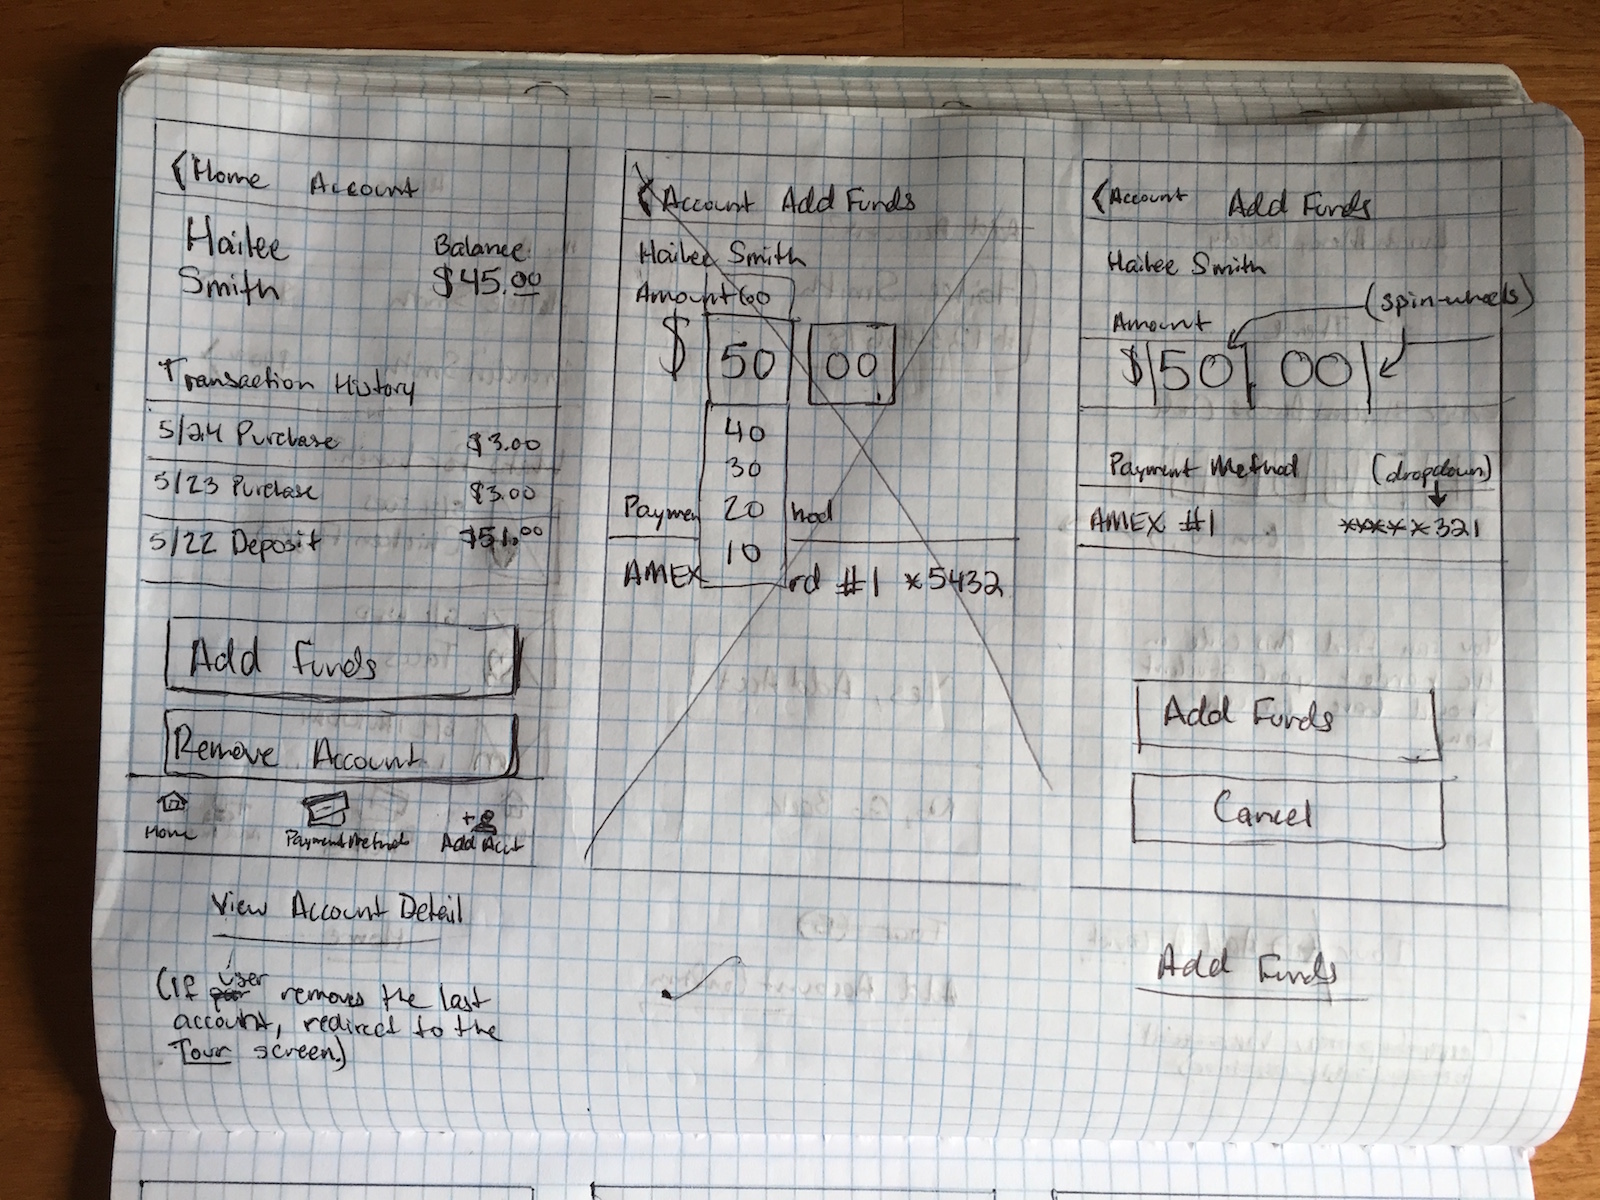 Home Account
Hailee
Smith
Balance:
$45.00
Transaction History
5/24 Purchase $3.00
5/23 Purchase $3.00
5/22 Deposit $51.00
Add Funds
Remove Account
Home
Payment Methods
+
Add Acct
View Account Detail
(If user removes the last
account, redirect to the
Tour screen)
Account Add Funds
Hailee Smith
Amount 60
$ 50 00
40
30
Paymen 20 hod
10
AMEX rd #1 *5432
Account Add Funds
Hailee Smith
(spin-wheels)
Amount
$ 50 00
Payment Method (dropdown)
AMEX #1 *****321
Add Funds
Cancel
Add Funds